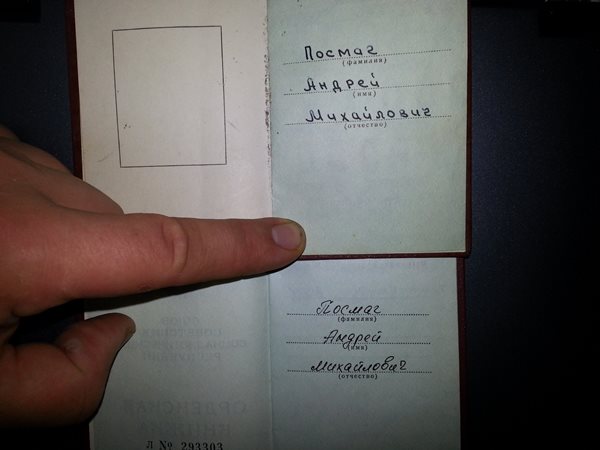 Посмаг
(фамилия)
Андрей
(имя)
Михайлович
(отчество)
Посмаг
(фамилия)
Андрей
(имя)
Михайлович
(отчество)
Л № 293303